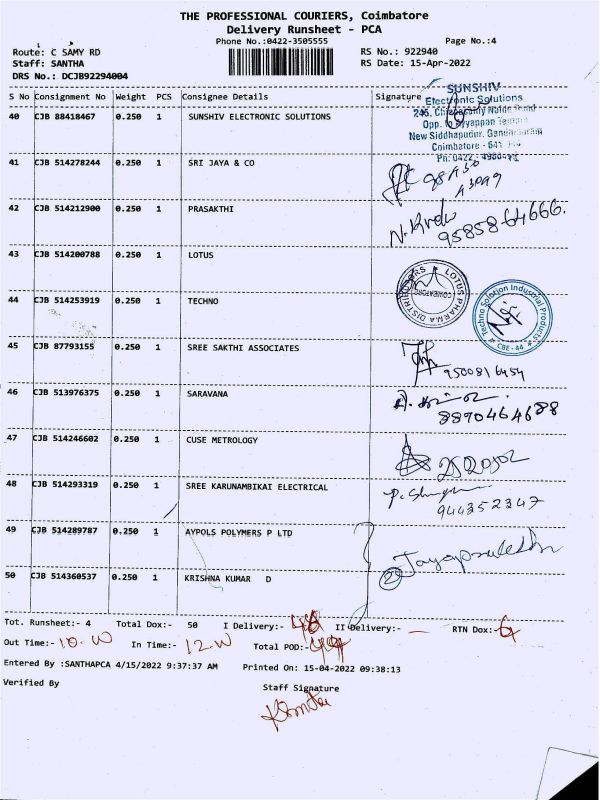 THE PROFESSIONAL COURIERS, Coimbatore
Delivery Runsheet - PCA
Phone No.:0422-3505555 Page No.:4
Route: C SAMY RD RS No.: 922940
Staff: SANTHA RS Date: 15-Apr-2022
DRS No.: DCJB92294004
S No Consignment No Weight PCS Consignee Details Signature
SUNSHIV
Electronic Solutions
40 CJB 88418467 0.250 1 SUNSHIV ELECTRONIC SOLUTIONS
Opp.
New Siddhapudur,
Coimbatore
41 CJB 514278244 0.250 1 SRI JAYA & CO
42 CJB 514212900 0.250 1 PRASAKTHI
9585864666.
43 CJB 514200788 0.250 1 LOTUS
LOTUS PHARMA DISTRIBUTORS
COIMBATORE
44 CJB 514253919 0.250 1 TECHNO
Techno Solution Industrial Products
CBE-44
45 CJB 87793155 0.250 1 SREE SAKTHI ASSOCIATES
9500816454
46 CJB 513976375 0.250 1 SARAVANA
8890464688
47 CJB 514246602 0.250 1 CUSE METROLOGY
48 CJB 514293319 0.250 1 SREE KARUNAMBIKAI ELECTRICAL
944352347
49 CJB 514289787 0.250 1 AYPOLS POLYMERS P LTD
50 CJB 514360537 0.250 1 KRISHNA KUMAR D
2
Tot. Runsheet:- 4 Total Dox:- 50 I Delivery:- II Delivery:- — RTN Dox:-
Out Time:- 10. In Time:- 12. Total POD:-
Entered By :SANTHAPCA 4/15/2022 9:37:37 AM Printed On: 15-04-2022 09:38:13
Verified By Staff Signature